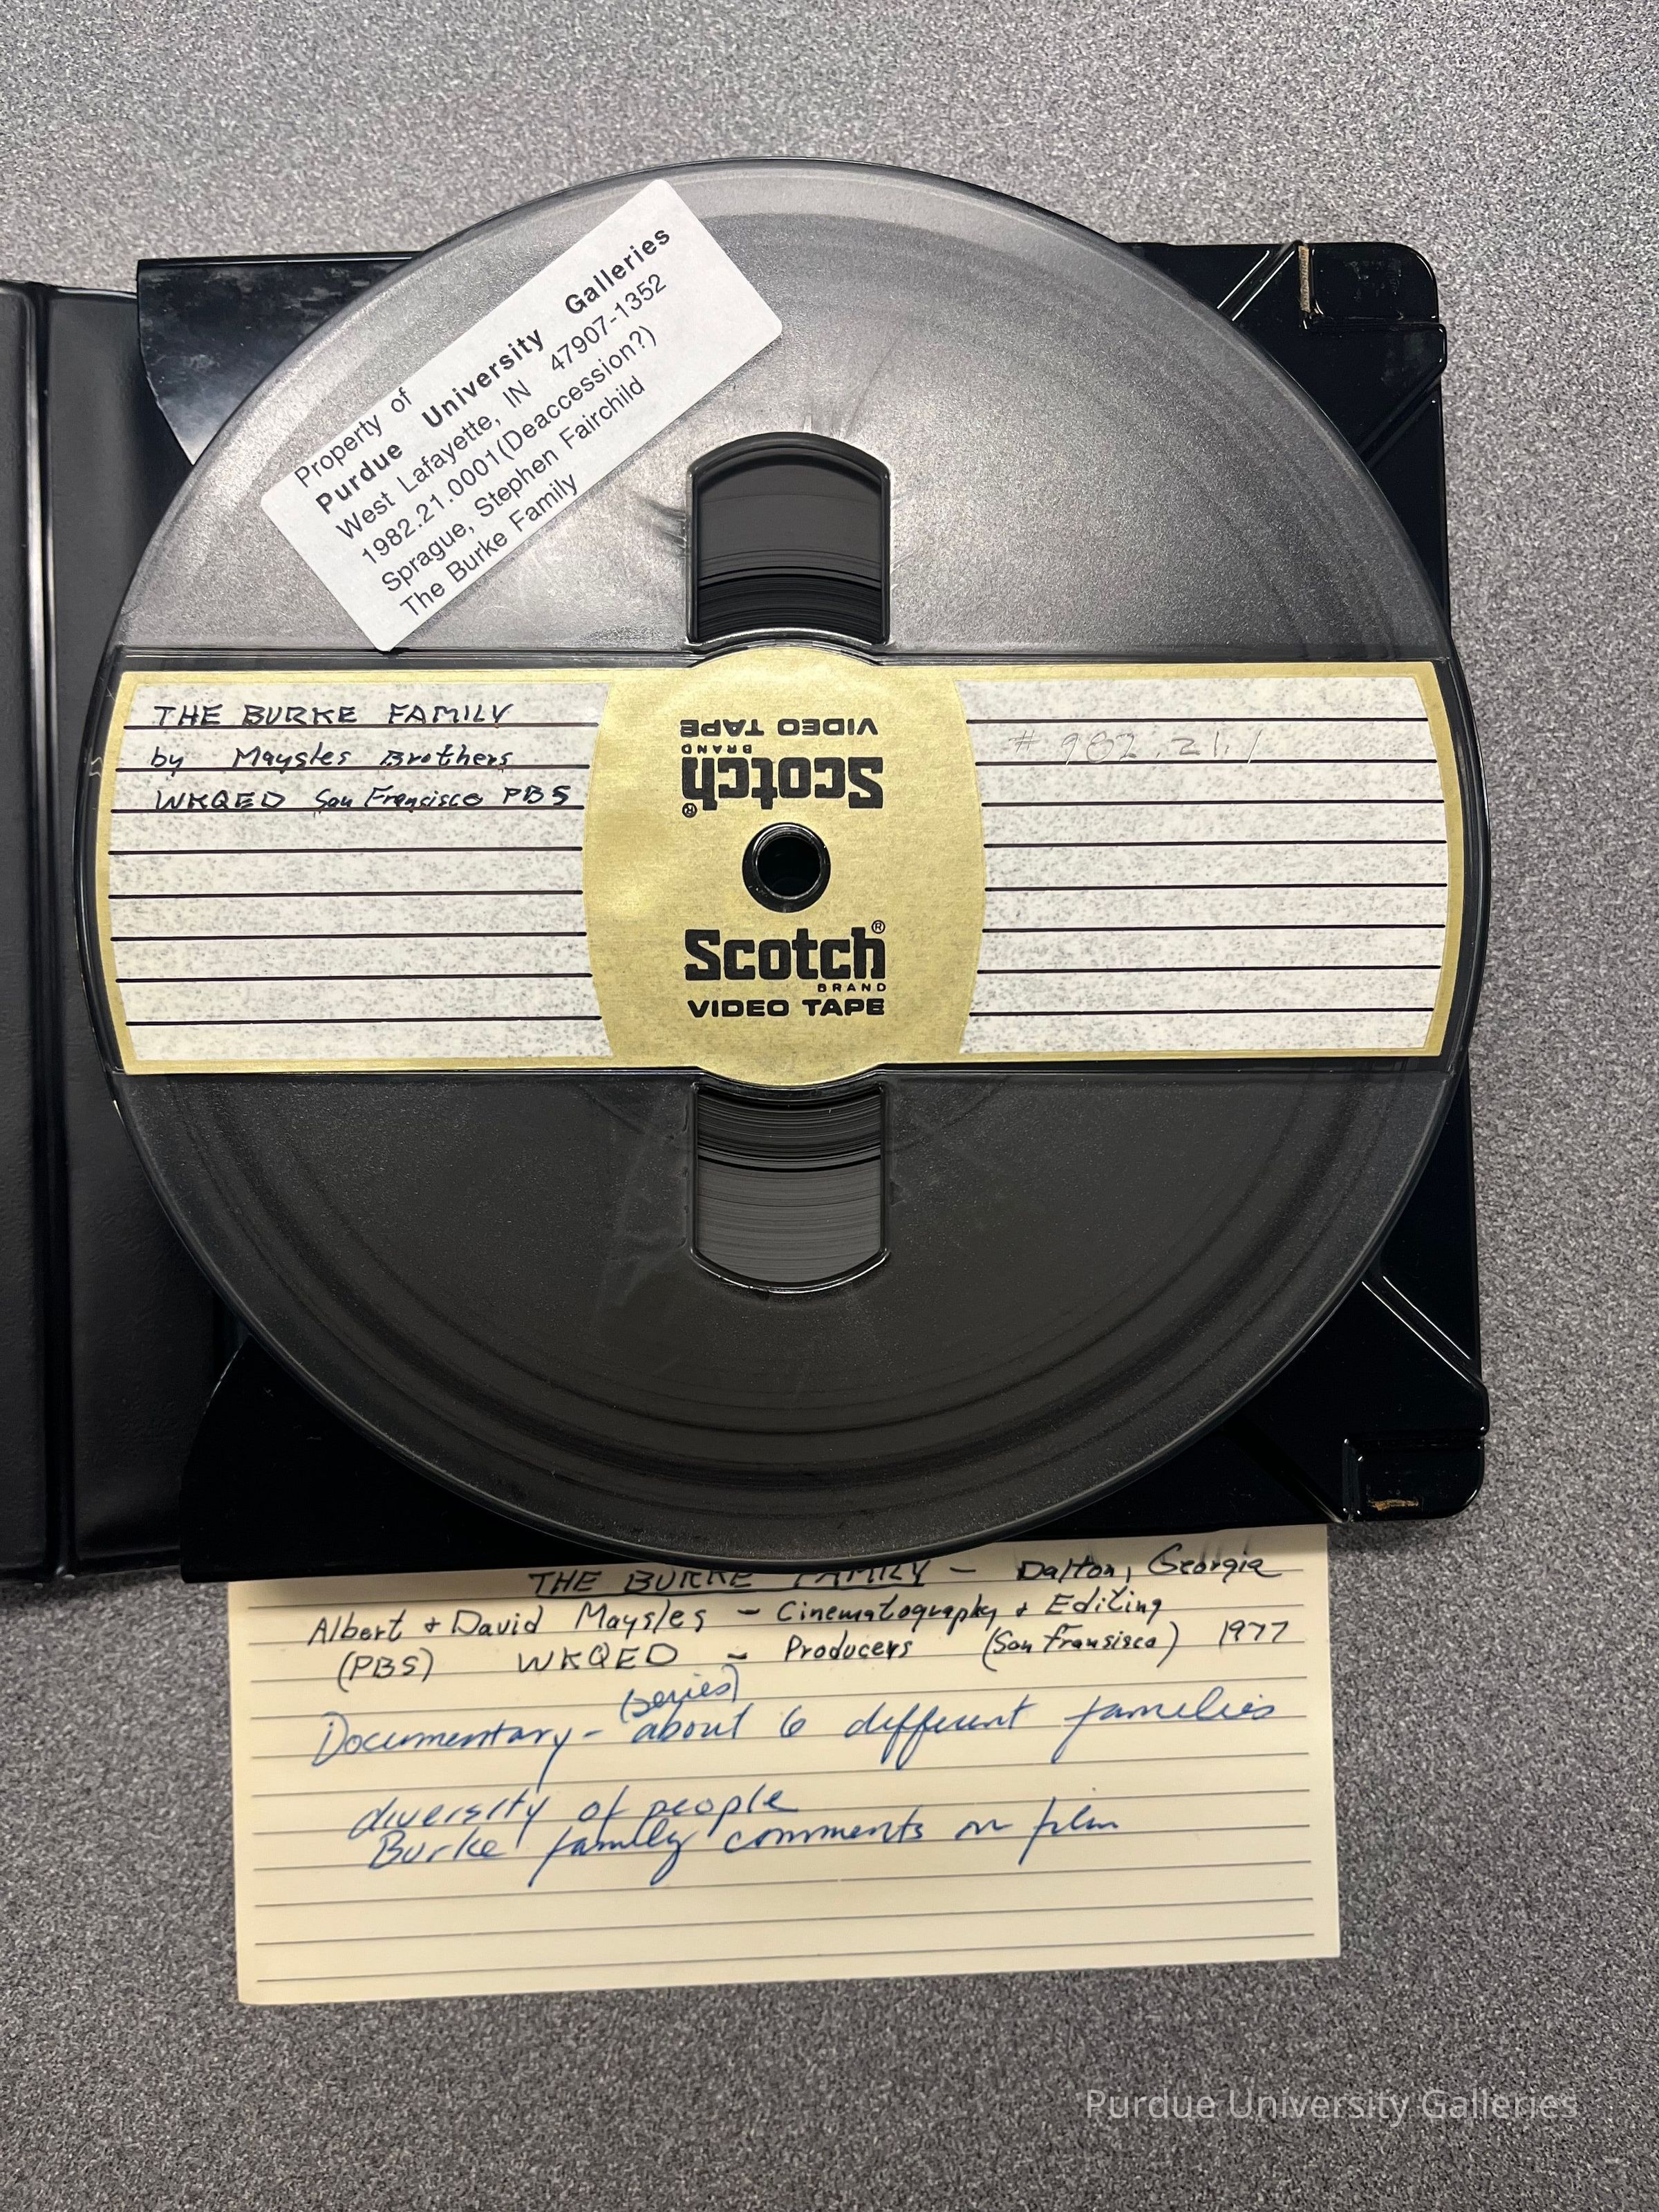 Property of
Purdue University Galleries
West Lafayette, IN 47907-1352
1982.21.0001(Deaccession?)
Sprague, Stephen Fairchild
The Burke Family
THE BURKE FAMILY
by Maysles Brothers
WKQED San Francisco PBS
VIDEO TAPE
BRAND
Scotch®
Scotch®
BRAND
VIDEO TAPE
# 982.21.1
THE BURKE FAMILY - Dalton, Georgia
Albert + David Maysles - Cinematography + Editing
(PBS) WKQED - Producers (San Fransisco) 1977
(series)
Documentary - about 6 different families
diversity of people
Burke family comments on film
Purdue University Galleries